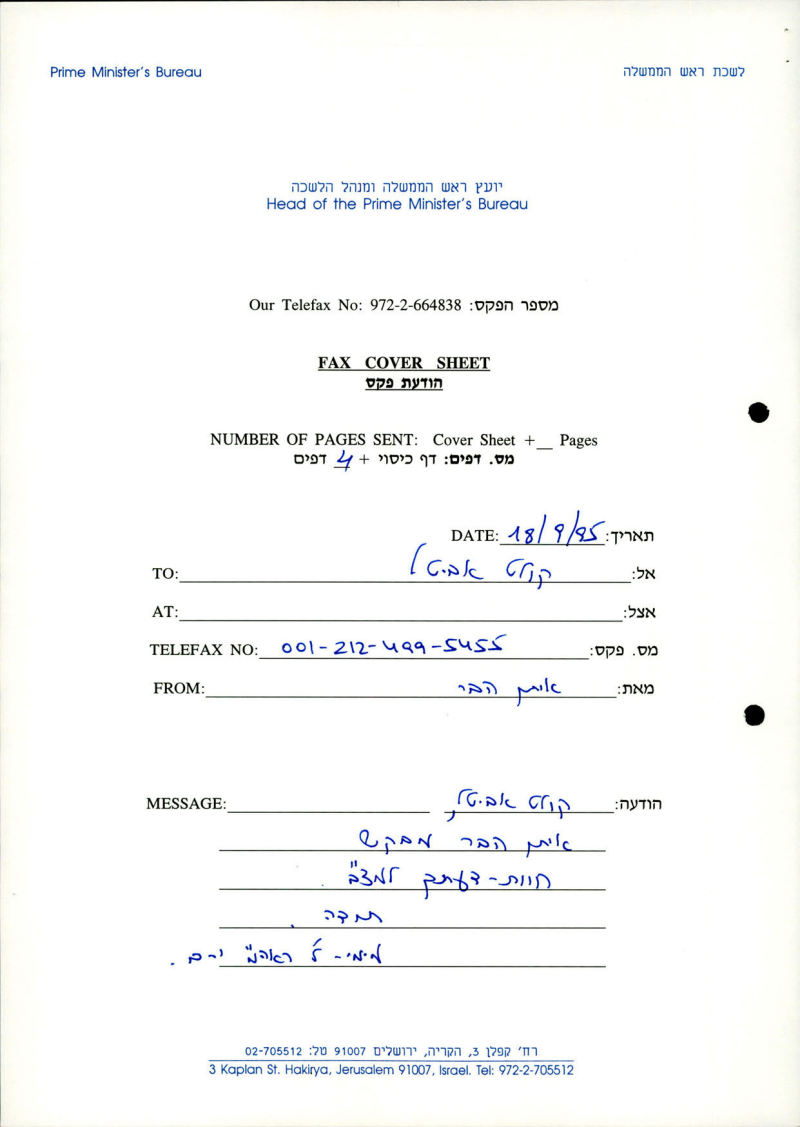 Prime Minister's Bureau לשכת ראש הממשלה
יועץ ראש הממשלה ומנהל הלשכה
Head of the Prime Minister's Bureau
Our Telefax No: 972-2-664838 :מספר הפקס
FAX COVER SHEET
הודעת פקס
NUMBER OF PAGES SENT: Cover Sheet +__ Pages
מס. דפים: דף כיסוי + 4 דפים
DATE: 18/9/95 תאריך:
TO: קולט אביטל אל:
AT: אצל:
TELEFAX NO: 001-212-499-5455 מס. פקס:
FROM: איתן הבר מאת:
MESSAGE: קולט אביטל, הודעה:
איתן הבר מבקש
חוות-דעתך למצ"ב.
תודה.
מימי - ל' ראה"מ י-ם.
רח' קפלן 3, הקריה, ירושלים 91007 טל: 02-705512
3 Kaplan St. Hakirya, Jerusalem 91007, Israel. Tel: 972-2-705512